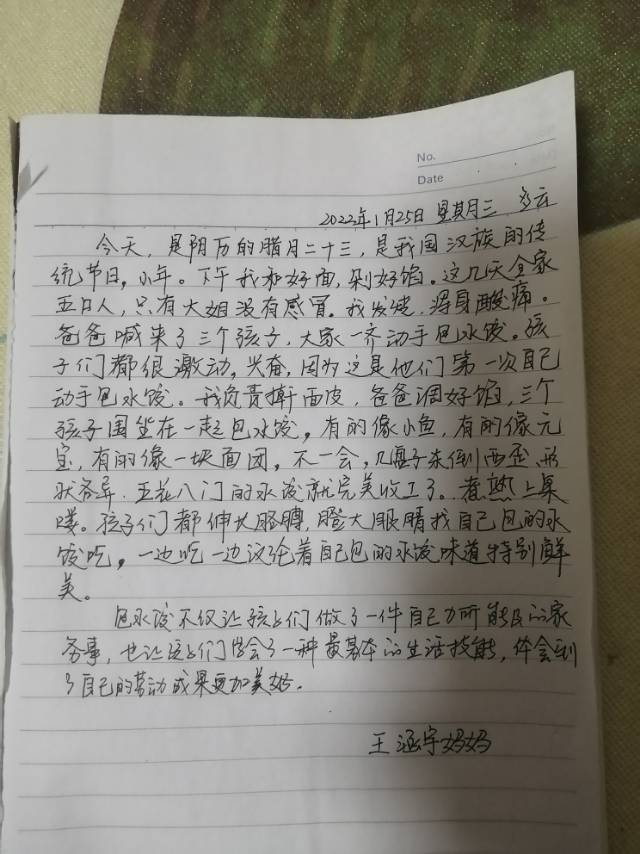 No.
Date
2022年1月25日 星期三 多云
今天，是阴历的腊月二十三，是我国汉族的传
统节日，小年。下午我和好面，剁好馅。这几天全家
五口人，只有大姐没有感冒。我发烧，浑身酸痛。
爸爸喊来了三个孩子，大家一齐动手包水饺。孩
子们都很激动，兴奋，因为这是他们第一次自己
动手包水饺。我负责擀面皮，爸爸调好馅，三个
孩子围坐在一起包水饺，有的像小鱼，有的像元
宝，有的像一块面团，不一会，几扇子东倒西歪，形
状各异，五花八门的水饺就完美收工了。煮熟上桌
喽。孩子们都伸长胳膊，瞪大眼睛找自己包的水
饺吃，一边吃一边议论着自己包的水饺味道特别鲜
美。
包水饺不仅让孩子们做了一件自己力所能及的家
务事，也让孩子们学会了一种最基本的生活技能，体会到
了自己的劳动成果更加美好。
王涵宇妈妈